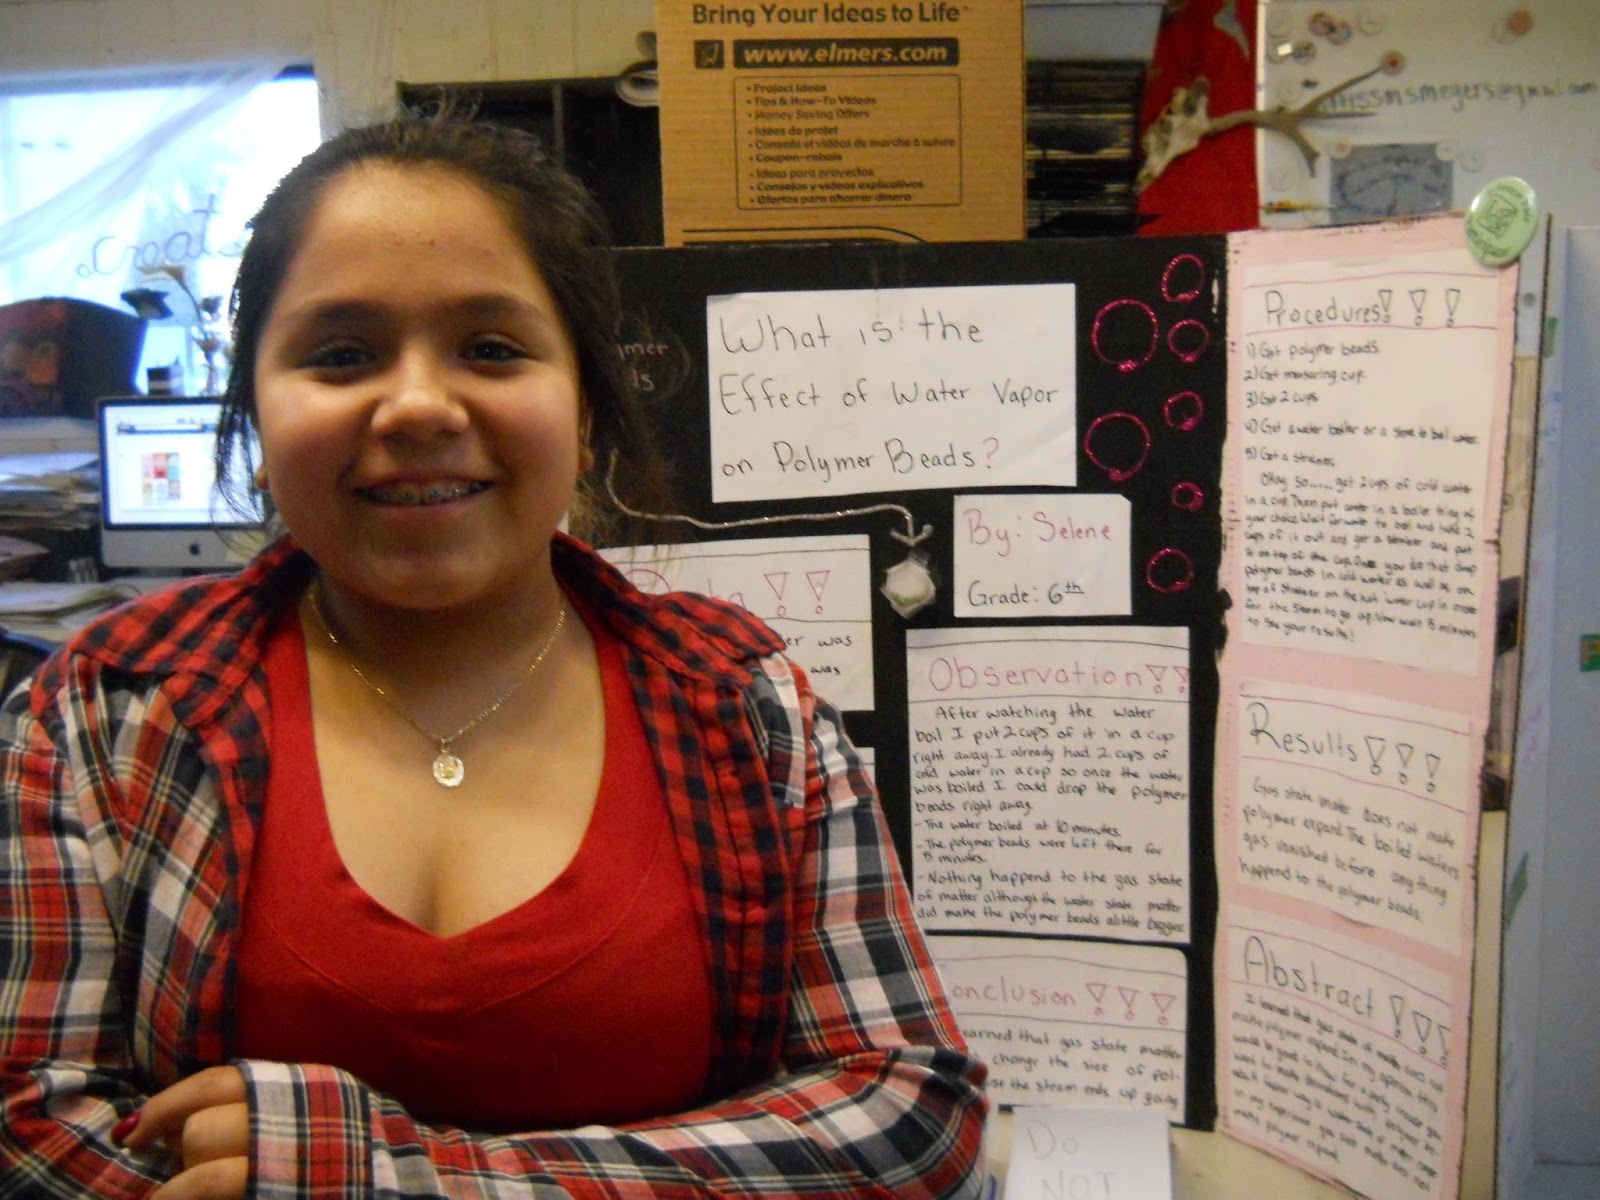 Bring Your Ideas to Life
www.elmers.com
• Project Ideas
• Tips & How-To Videos
• Money Saving Offers
• Idées de projet
• Conseils et vidéos de marche à suivre
• Coupon-rabais
• Ideas para proyectos
• Consejos y videos explicativos
• Ofertas para ahorrar dinero
missmsmeyers@gmail.com
What is the
Effect of Water Vapor
on Polymer Beads?
By: Selene
Grade: 6th
was
was
Observation!!
After watching the water
boil I put 2 cups of it in a cup
right away. I already had 2 cups of
cold water in a cup so once the water
was boiled I could drop the polymer
beads right away.
- The water boiled at 10 minutes.
- The polymer beads were left there for
15 minutes.
- Nothing happend to the gas state
of matter although the water state matter
did make the polymer beads a little bigger.
onclusion!!!
earned that gas state matter
change the size of pol-
use the steam ends up going
Do
NOT
Procedures!!!
1) Get polymer beads.
2) Get measuring cup.
3) Get 2 cups
4) Get a water boiler or a stove to boil water.
5) Get a strainer.
Okay so..... get 2 cups of cold water
in a cup. Then put water in a boiler thing of
your choice. Wait for water to boil and take 2
cups of it out and get a strainer and put
it on top of the cup. Once you do that drop
polymer beads in cold water as well as on
top of strainer on the hot water cup in order
for the steam to go up. Now wait 15 minutes
to see your results!
Results!!!
Gas state matter does not make
polymer expand. The boiled waters
gas vanished before anything
happend to the polymer beads.
Abstract!!!
I learned that gas state of matter does not
make polymer expand. In my opinion this
would be good to know for a party cause you
want to make decorations with polymer
in my experience gas state matter does not
make polymer expand.